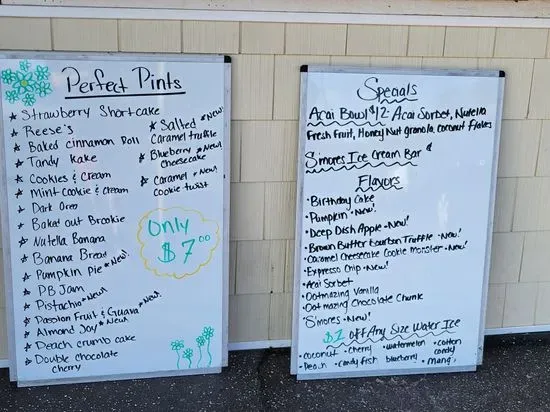 Perfect Pints
Strawberry Shortcake
Reese's
Baked cinnamon Roll
Tandy Kake
Cookies & Cream
Mint Cookie & Cream
Dark Oreo
Baked out Brookie
Nutella Banana
Banana Bread
Pumpkin Pie *New!
PB Jam
Pistachio *New!
Passion Fruit & Guava *New!
Almond Joy *New!
Peach crumb cake
Double chocolate
cherry
Salted *New!
Caramel truffle
Blueberry *New!
cheesecake
Caramel *New!
cookie twist
Only
$7.00
Specials
Acai Bowl $12: Acai Sorbet, Nutella
Fresh Fruit, Honey Nut granola, coconut flakes
S'mores Ice Cream Bar
Flavors
•Birthday Cake
•Pumpkin •New!
•Deep Dish Apple •New!
•Brown Butter Bourbon Truffle •New!
•Caramel Cheesecake Cookie Monster •New!
•Expresso Chip •New!
•Acai Sorbet
•Oatmazing Vanilla
•Oatmazing Chocolate Chunk
•S'mores •New!
$1 off Any Size Water Ice
coconut •Cherry •watermelon •cotton candy
•Peach •candy fish blueberry •Mango